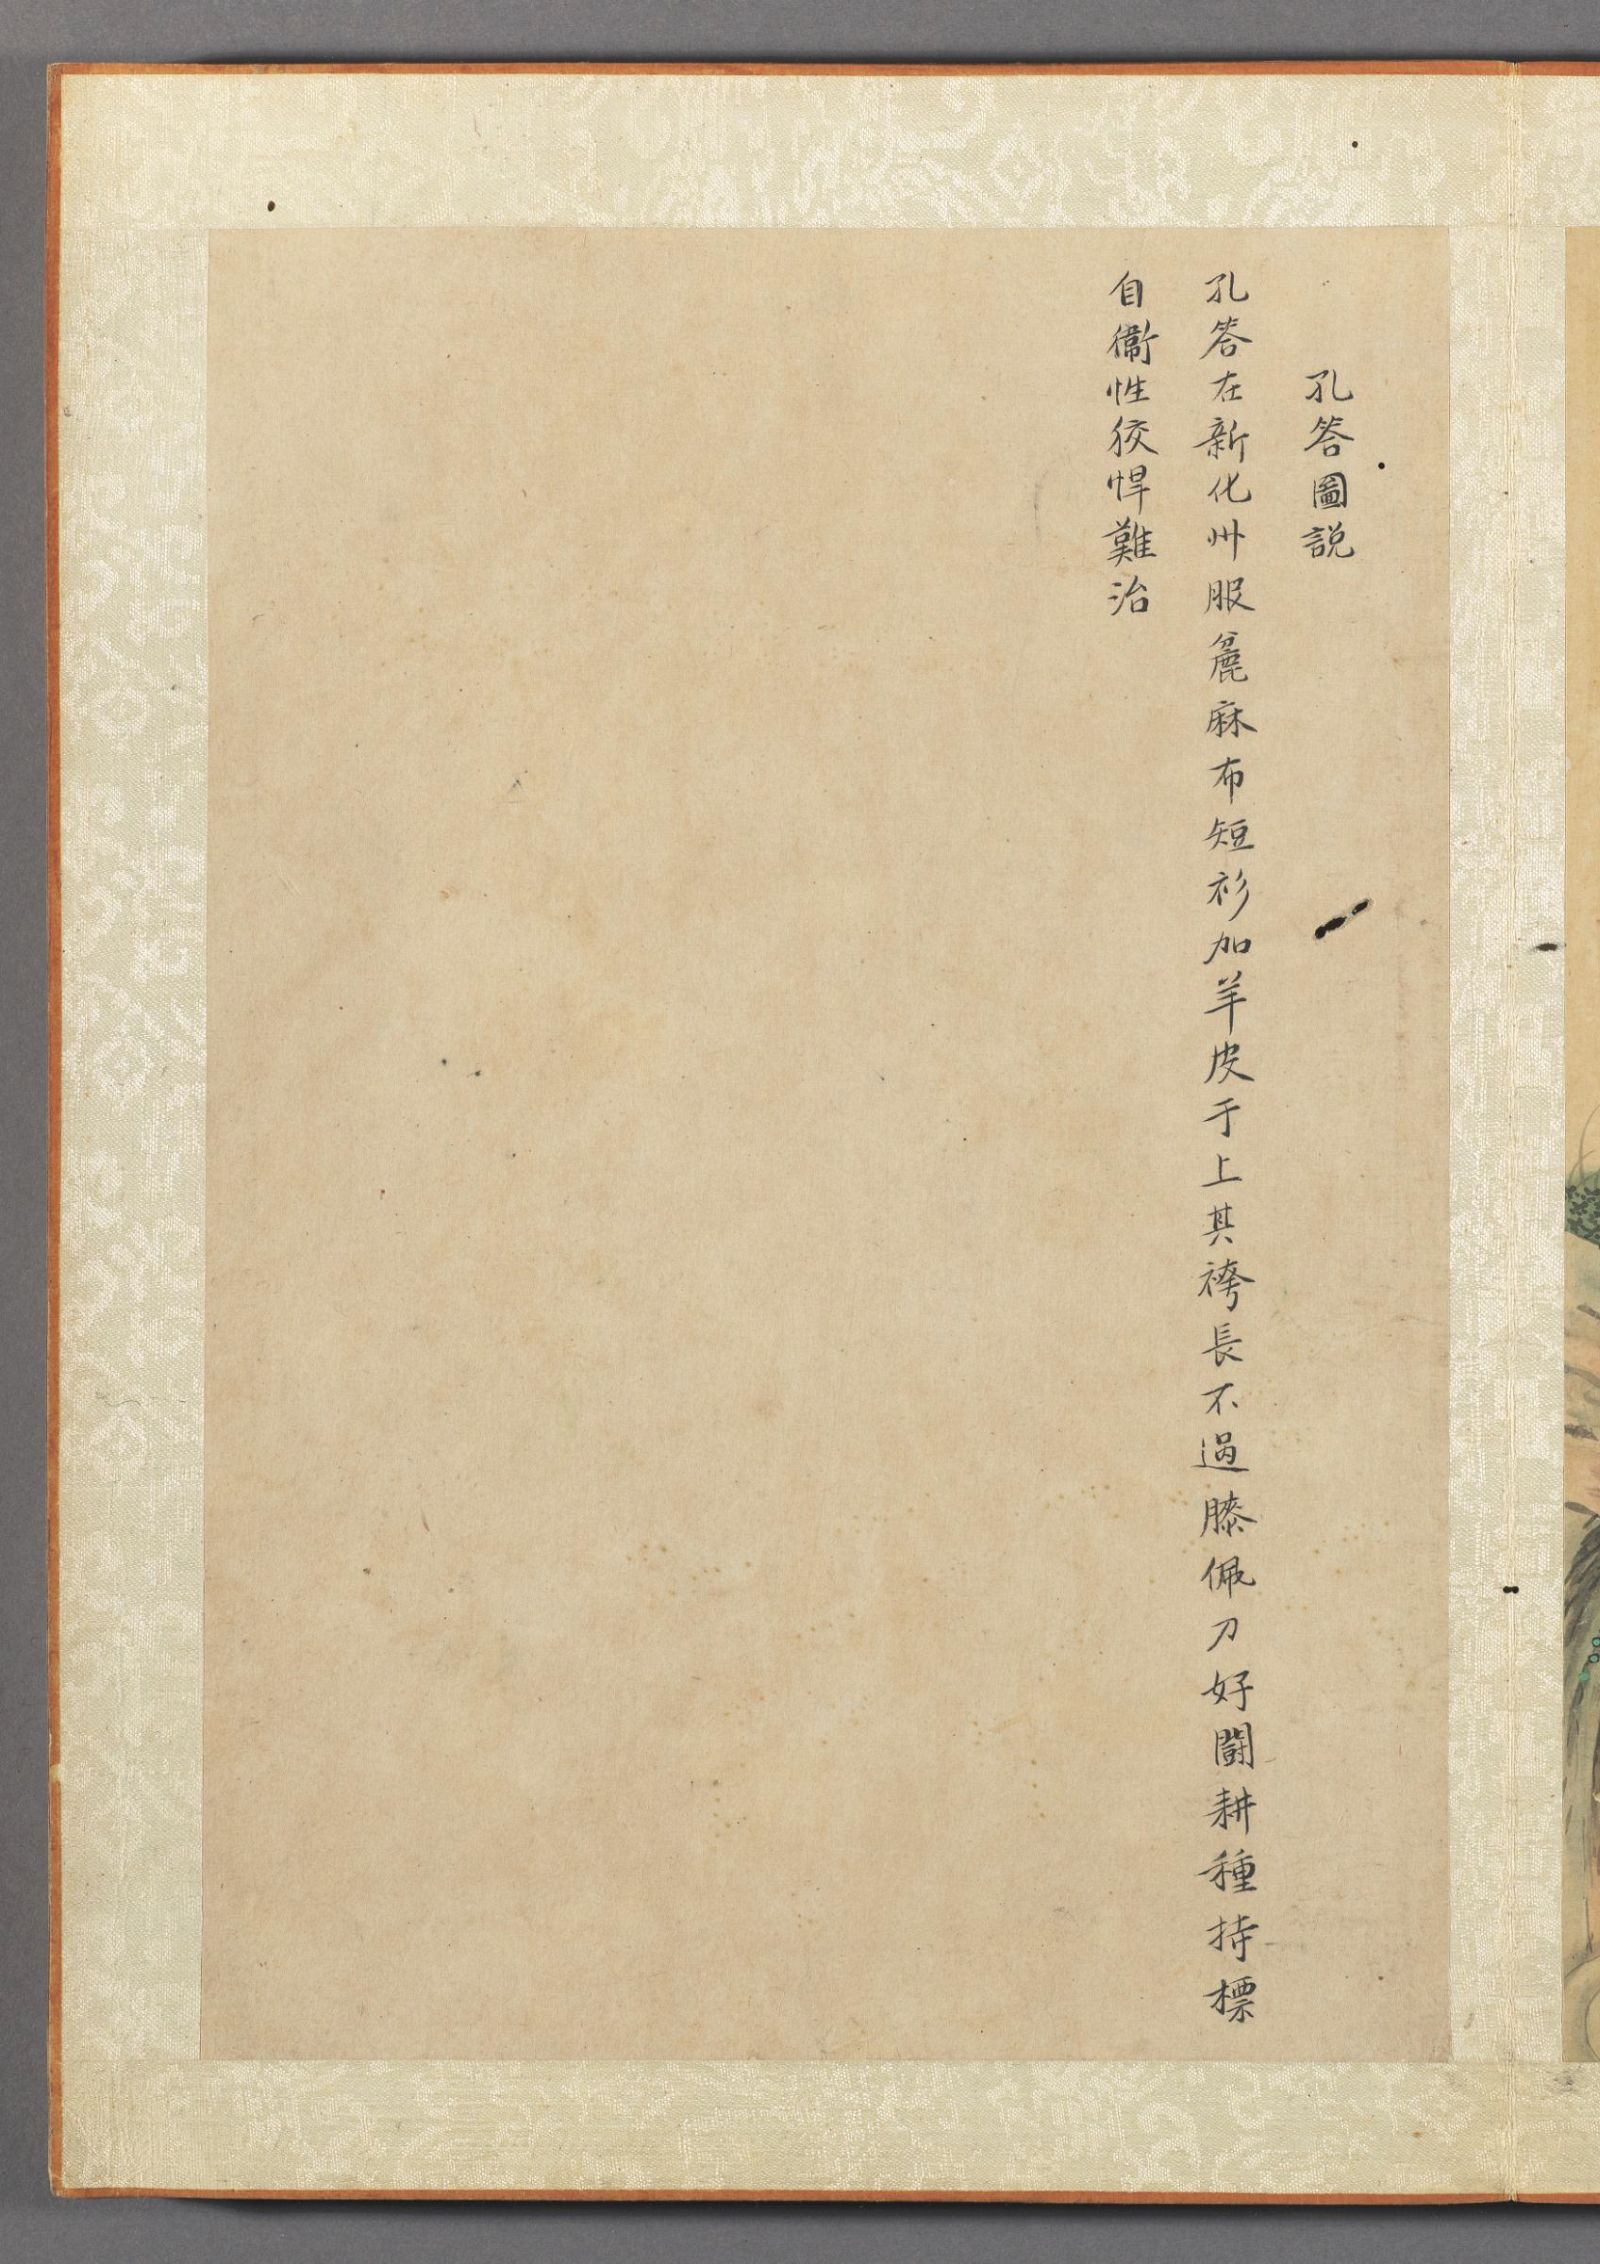 孔答圖說
孔答在新化州服麄麻布短衫加羊皮于上其袴長不過膝佩刀好鬬耕種持標
自衛性狡悍難治